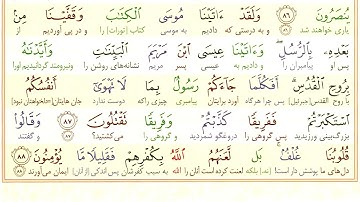 يُنْصَرُونَ ﴿٨٦﴾ وَلَقَدْ ءَاتَيْنَا مُوسَى الْكِتَابَ وَقَفَّيْنَا مِنْ
یاری خواهند شد و به درستی که دادیم به موسی کتاب [تورات] را و در پی آوردیم از
بَعْدِهِ بِالرُّسُلِ وَءَاتَيْنَا عِيسَى ابْنَ مَرْيَمَ الْبَيِّنَاتِ وَأَيَّدْنَاهُ
پس او پیامبران را و دادیم به عیسی پسر مریم نشانه‌های روشن را و نیرومند گردانیدیم او را
بِرُوحِ الْقُدُسِ أَفَكُلَّمَا جَاءَكُمْ رَسُولٌ بِمَا لَا تَهْوَىٰ أَنْفُسُكُمُ
با روح القدس (جبرئیل) پس چرا هرگاه آورد برایتان پیامبری چیزی را که دوست ندارد جان‌هایتان [دلخواهتان نبود]
اسْتَكْبَرْتُمْ فَفَرِيقًا كَذَّبْتُمْ وَفَرِيقًا تَقْتُلُونَ ﴿٨٧﴾ وَقَالُوا
بزرگ‌بینی ورزیدید پس گروهی را دروغگو شمردید و گروهی را می‌کشتید؟ و گفتند
قُلُوبُنَا غُلْفٌ بَلْ لَعَنَهُمُ اللَّهُ بِكُفْرِهِمْ فَقَلِيلًا مَا يُؤْمِنُونَ ﴿٨٨﴾
دل‌های ما پوشش دار است! [نه،] بلکه لعنت کرده است آنان را الله به سبب کفرشان پس اندکی [از آنان] ایمان می‌آورند